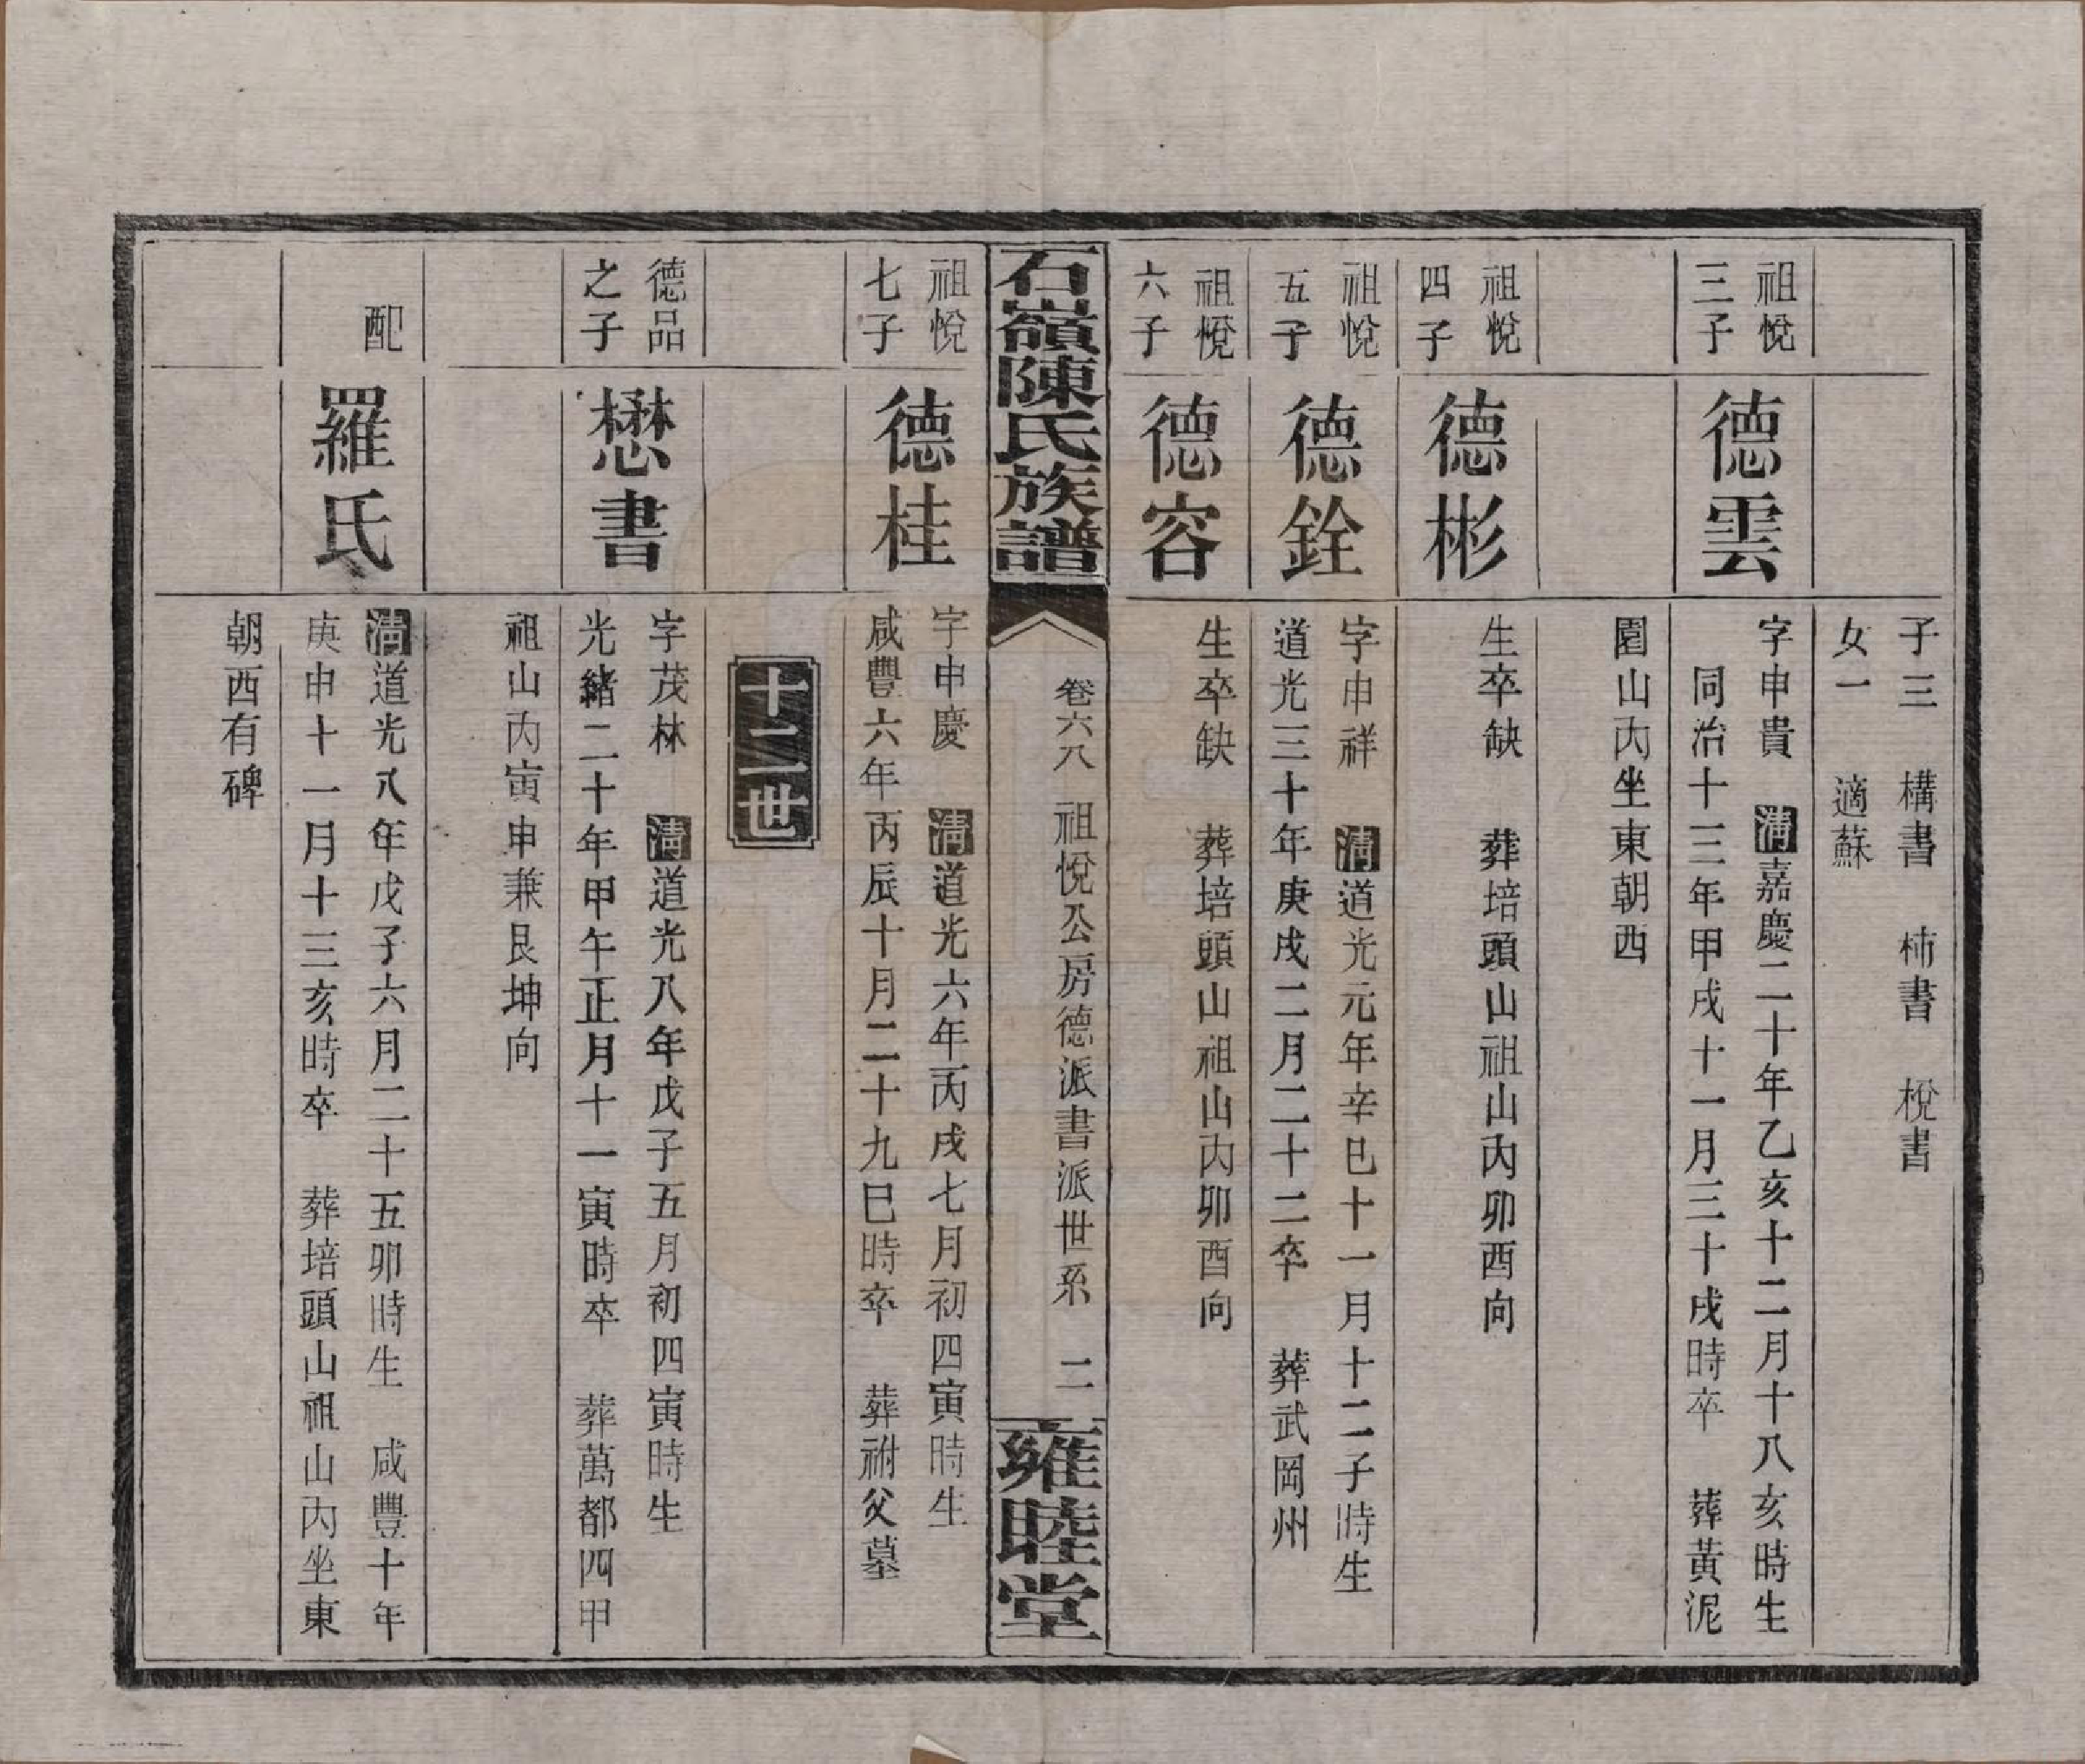 子三　構書　柿書　梲書
女一　適蘇
祖悅
三子
德雲
字申貴　清嘉慶二十年乙亥十二月十八亥時生
同治十三年甲戌十一月三十戌時卒　葬黃泥
園山內坐東朝西
祖悅
四子
德彬
生卒缺　葬培頭山祖山內卯酉向
祖悅
五子
德銓
字申祥　清道光元年辛巳十一月十二子時生
道光三十年庚戌二月二十二卒　葬武岡州
祖悅
六子
德容
生卒缺　葬培頭山祖山內卯酉向
石嶺陳氏族譜
卷六八　祖悅公房德派書派世系　二
雍睦堂
祖悅
七子
德桂
字申慶　清道光六年丙戌七月初四寅時生
咸豐六年丙辰十月二十九巳時卒　葬祔父墓
十二世
德品
之子
懋書
字茂林　清道光八年戊子五月初四寅時生
光緒二十年甲午正月十一寅時卒　葬萬都四甲
祖山內寅申兼艮坤向
配
羅氏
清道光八年戊子六月二十五卯時生　咸豐十年
庚申十一月十三亥時卒　葬培頭山祖山內坐東
朝西有碑